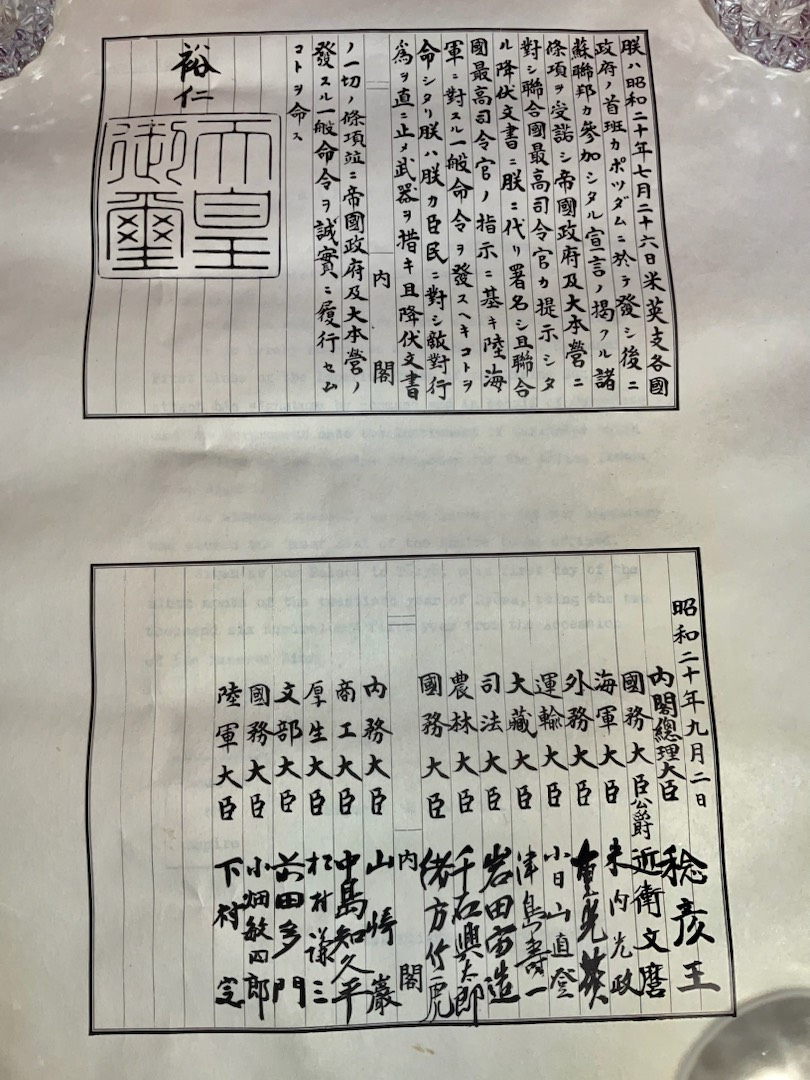 朕ハ昭和二十年七月二十六日米英支各國
政府ノ首班カポツダムニ於テ發シ後ニ
蘇聯邦カ參加シタル宣言ノ掲クル諸
條項ヲ受諾シ帝國政府及大本營ニ
對シ聯合國最高司令官カ提示シタ
ル降伏文書ニ朕ニ代リ署名シ且聯合
國最高司令官ノ指示ニ基キ陸海
軍ニ對スル一般命令ヲ發スヘキコトヲ
命シタリ朕ハ朕カ臣民ニ對シ敵對行
為ヲ直ニ止メ武器ヲ措キ且降伏文書
内閣
ノ一切ノ條項竝ニ帝國政府及大本營ノ
發スル一般命令ヲ誠實ニ履行セム
コトヲ命ス
裕仁
天皇
御璽
昭和二十年九月二日
内閣總理大臣 稔彦王
國務大臣公爵 近衛文麿
海軍大臣 米内光政
外務大臣 重光葵
運輸大臣 小日山直登
大藏大臣 津島壽一
司法大臣 岩田宙造
農林大臣 千石興太郎
國務大臣 緒方竹虎
内閣
内務大臣 山崎巖
商工大臣 中島知久平
厚生大臣 松村謙三
文部大臣 前田多門
國務大臣 小畑敏四郎
陸軍大臣 下村定